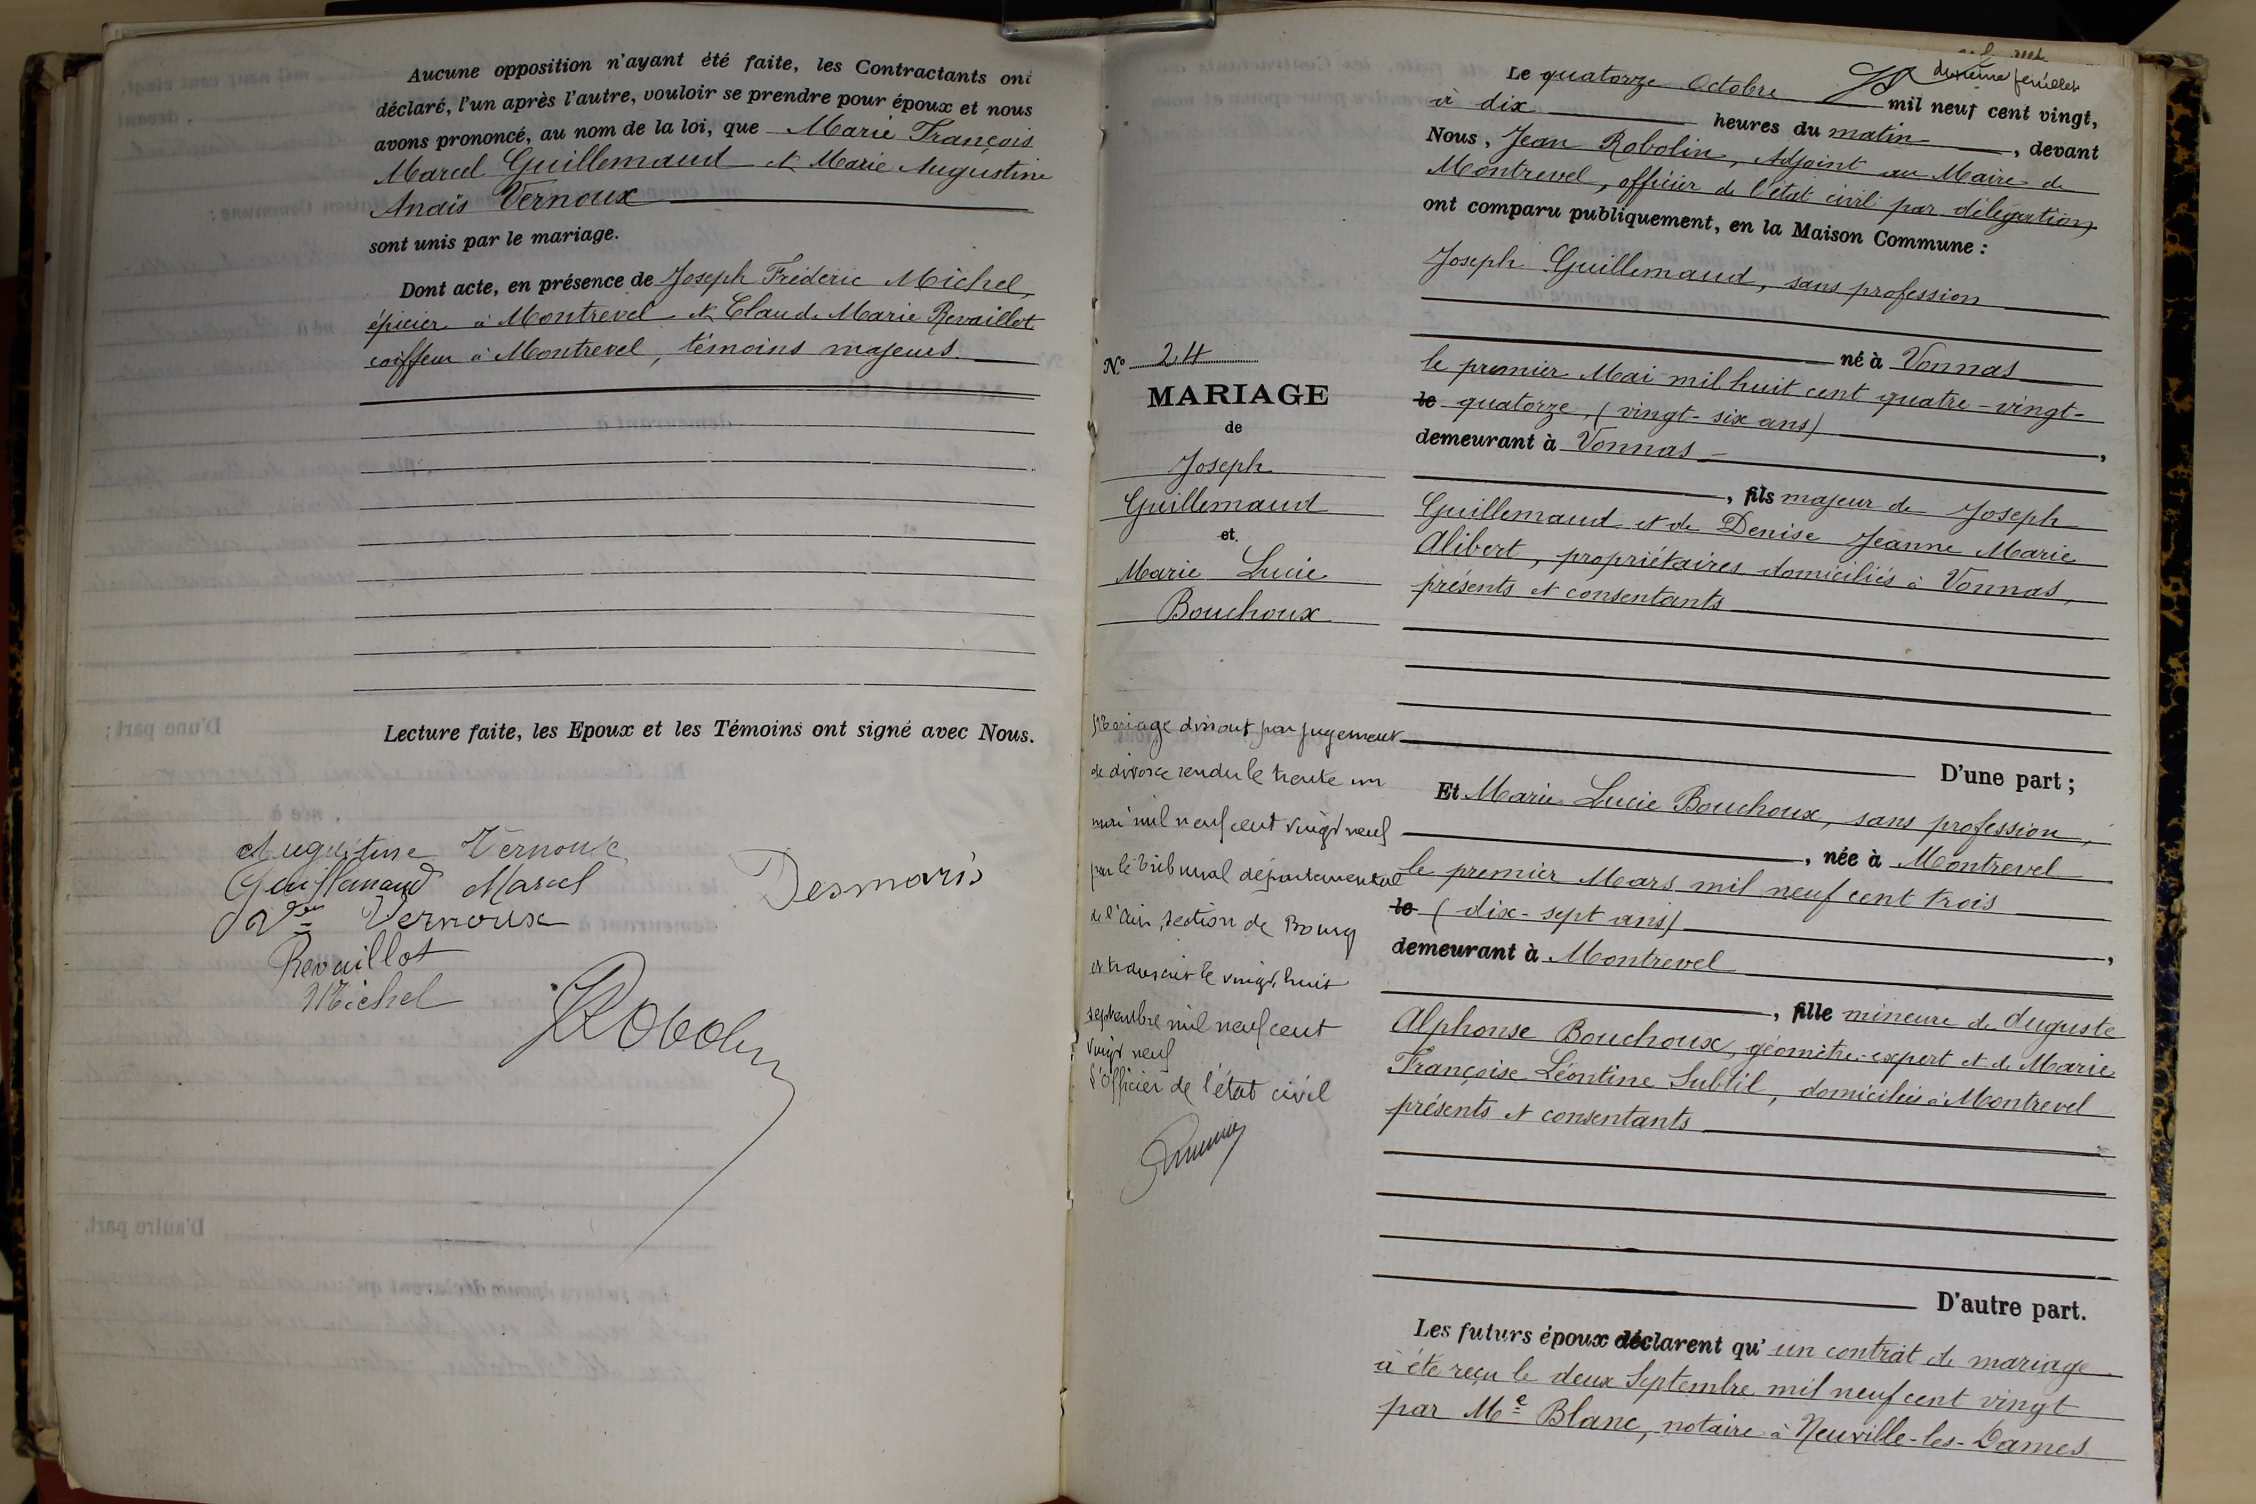 Aucune opposition n'ayant été faite, les Contractants ont
déclaré, l'un après l'autre, vouloir se prendre pour époux et nous
avons prononcé, au nom de la loi, que Marie François
Marcel Guillemaud et Marie Augustine
Anaïs Vernoux
sont unis par le mariage.
Dont acte, en présence de Joseph Frédéric Michel,
épicier à Montrevel et Claude Marie Revaillot
coiffeur à Montrevel, témoins majeurs.
Lecture faite, les Epoux et les Témoins ont signé avec Nous.
Augustine Vernoux
Guillemaud Marcel
Desmaris
Vve Vernoux
Revaillot
Michel
Robolin
N° 24
MARIAGE
de
Joseph
Guillemaud
et
Marie Lucie
Bouchoux
Mariage dissout par jugement
de divorce rendu le trente un
mai mil neuf cent vingt neuf
par le tribunal départemental
de l'Ain, section de Bourg
et transcrit le vingt huit
septembre mil neuf cent
vingt neuf
L'Officier de l'état civil
deuxième feuillet
Le quatorze Octobre mil neuf cent vingt,
à dix heures du matin, devant
Nous, Jean Robolin, Adjoint au Maire de
Montrevel, officier de l'état civil par délégation
ont comparu publiquement, en la Maison Commune :
Joseph Guillemaud, sans profession
né à Vonnas
le premier Mai mil huit cent quatre-vingt-
le quatorze, (vingt-six ans)
demeurant à Vonnas ,
, fils majeur de Joseph
Guillemaud et de Denise Jeanne Marie
Alibert, propriétaires domiciliés à Vonnas,
présents et consentants
D'une part ;
Et Marie Lucie Bouchoux, sans profession,
, née à Montrevel
le premier Mars mil neuf cent trois
le (dix-sept ans)
demeurant à Montrevel ,
, fille mineure de Auguste
Alphonse Bouchoux, géomètre-expert et de Marie
Françoise Léontine Subtil, domiciliés à Montrevel
présents et consentants
D'autre part.
Les futurs époux déclarent qu'un contrat de mariage
a été reçu le deux Septembre mil neuf cent vingt
par Me Blanc, notaire à Neuville-les-Dames